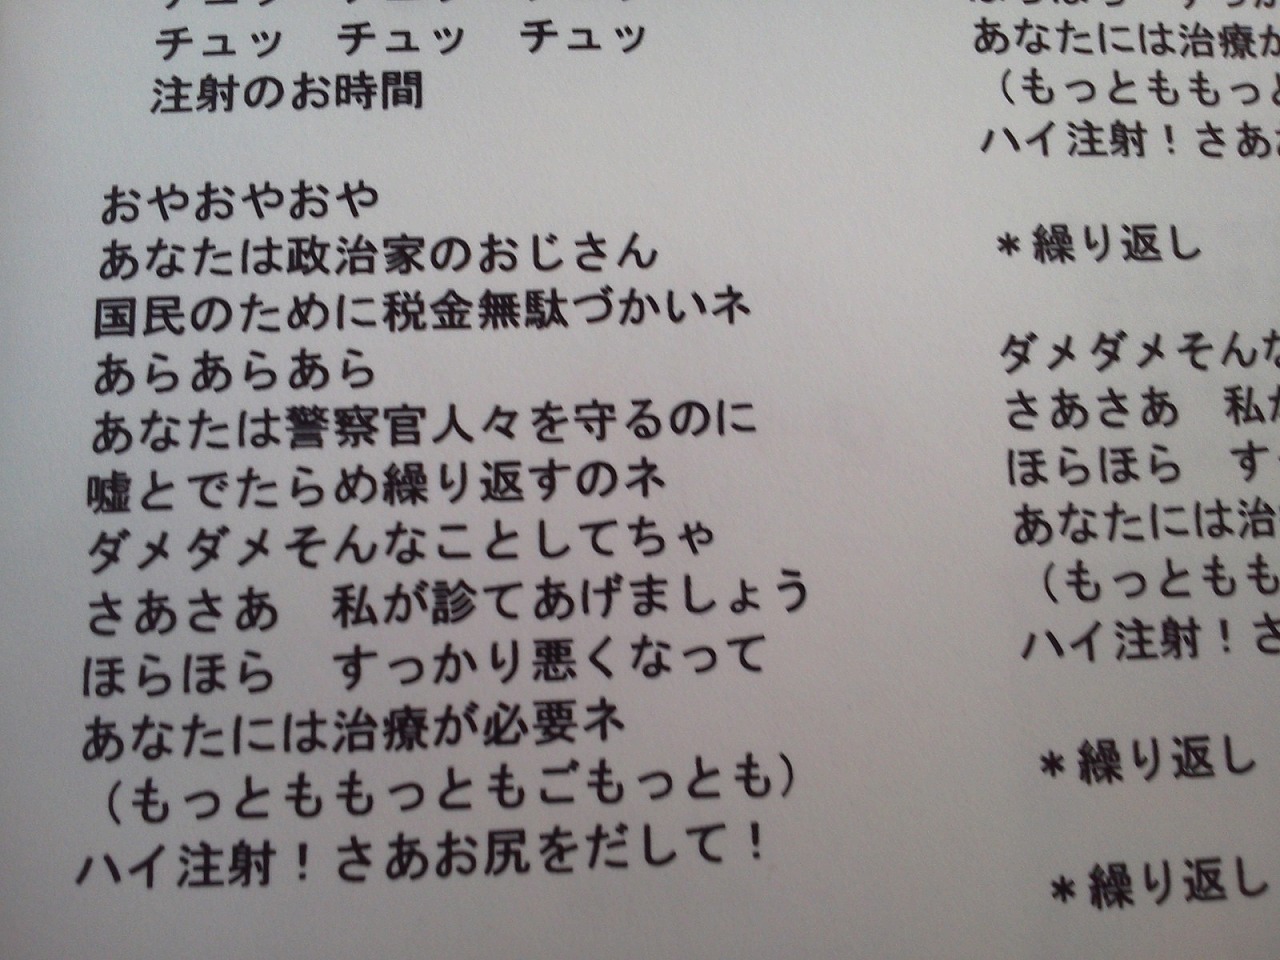 チュッ　チュッ　チュッ
注射のお時間
おやおやおや
あなたは政治家のおじさん
国民のために税金無駄づかいネ
あらあらあら
あなたは警察官人々を守るのに
嘘とでたらめ繰り返すのネ
ダメダメそんなことしてちゃ
さあさあ　私が診てあげましょう
ほらほら　すっかり悪くなって
あなたには治療が必要ネ
（もっとももっともごもっとも）
ハイ注射！さあお尻をだして！
あなたには治療が
（もっとももっと
ハイ注射！さあ
＊繰り返し
ダメダメそんな
さあさあ　私が
ほらほら　すっ
あなたには治
（もっともも
ハイ注射！さ
＊繰り返し
＊繰り返し